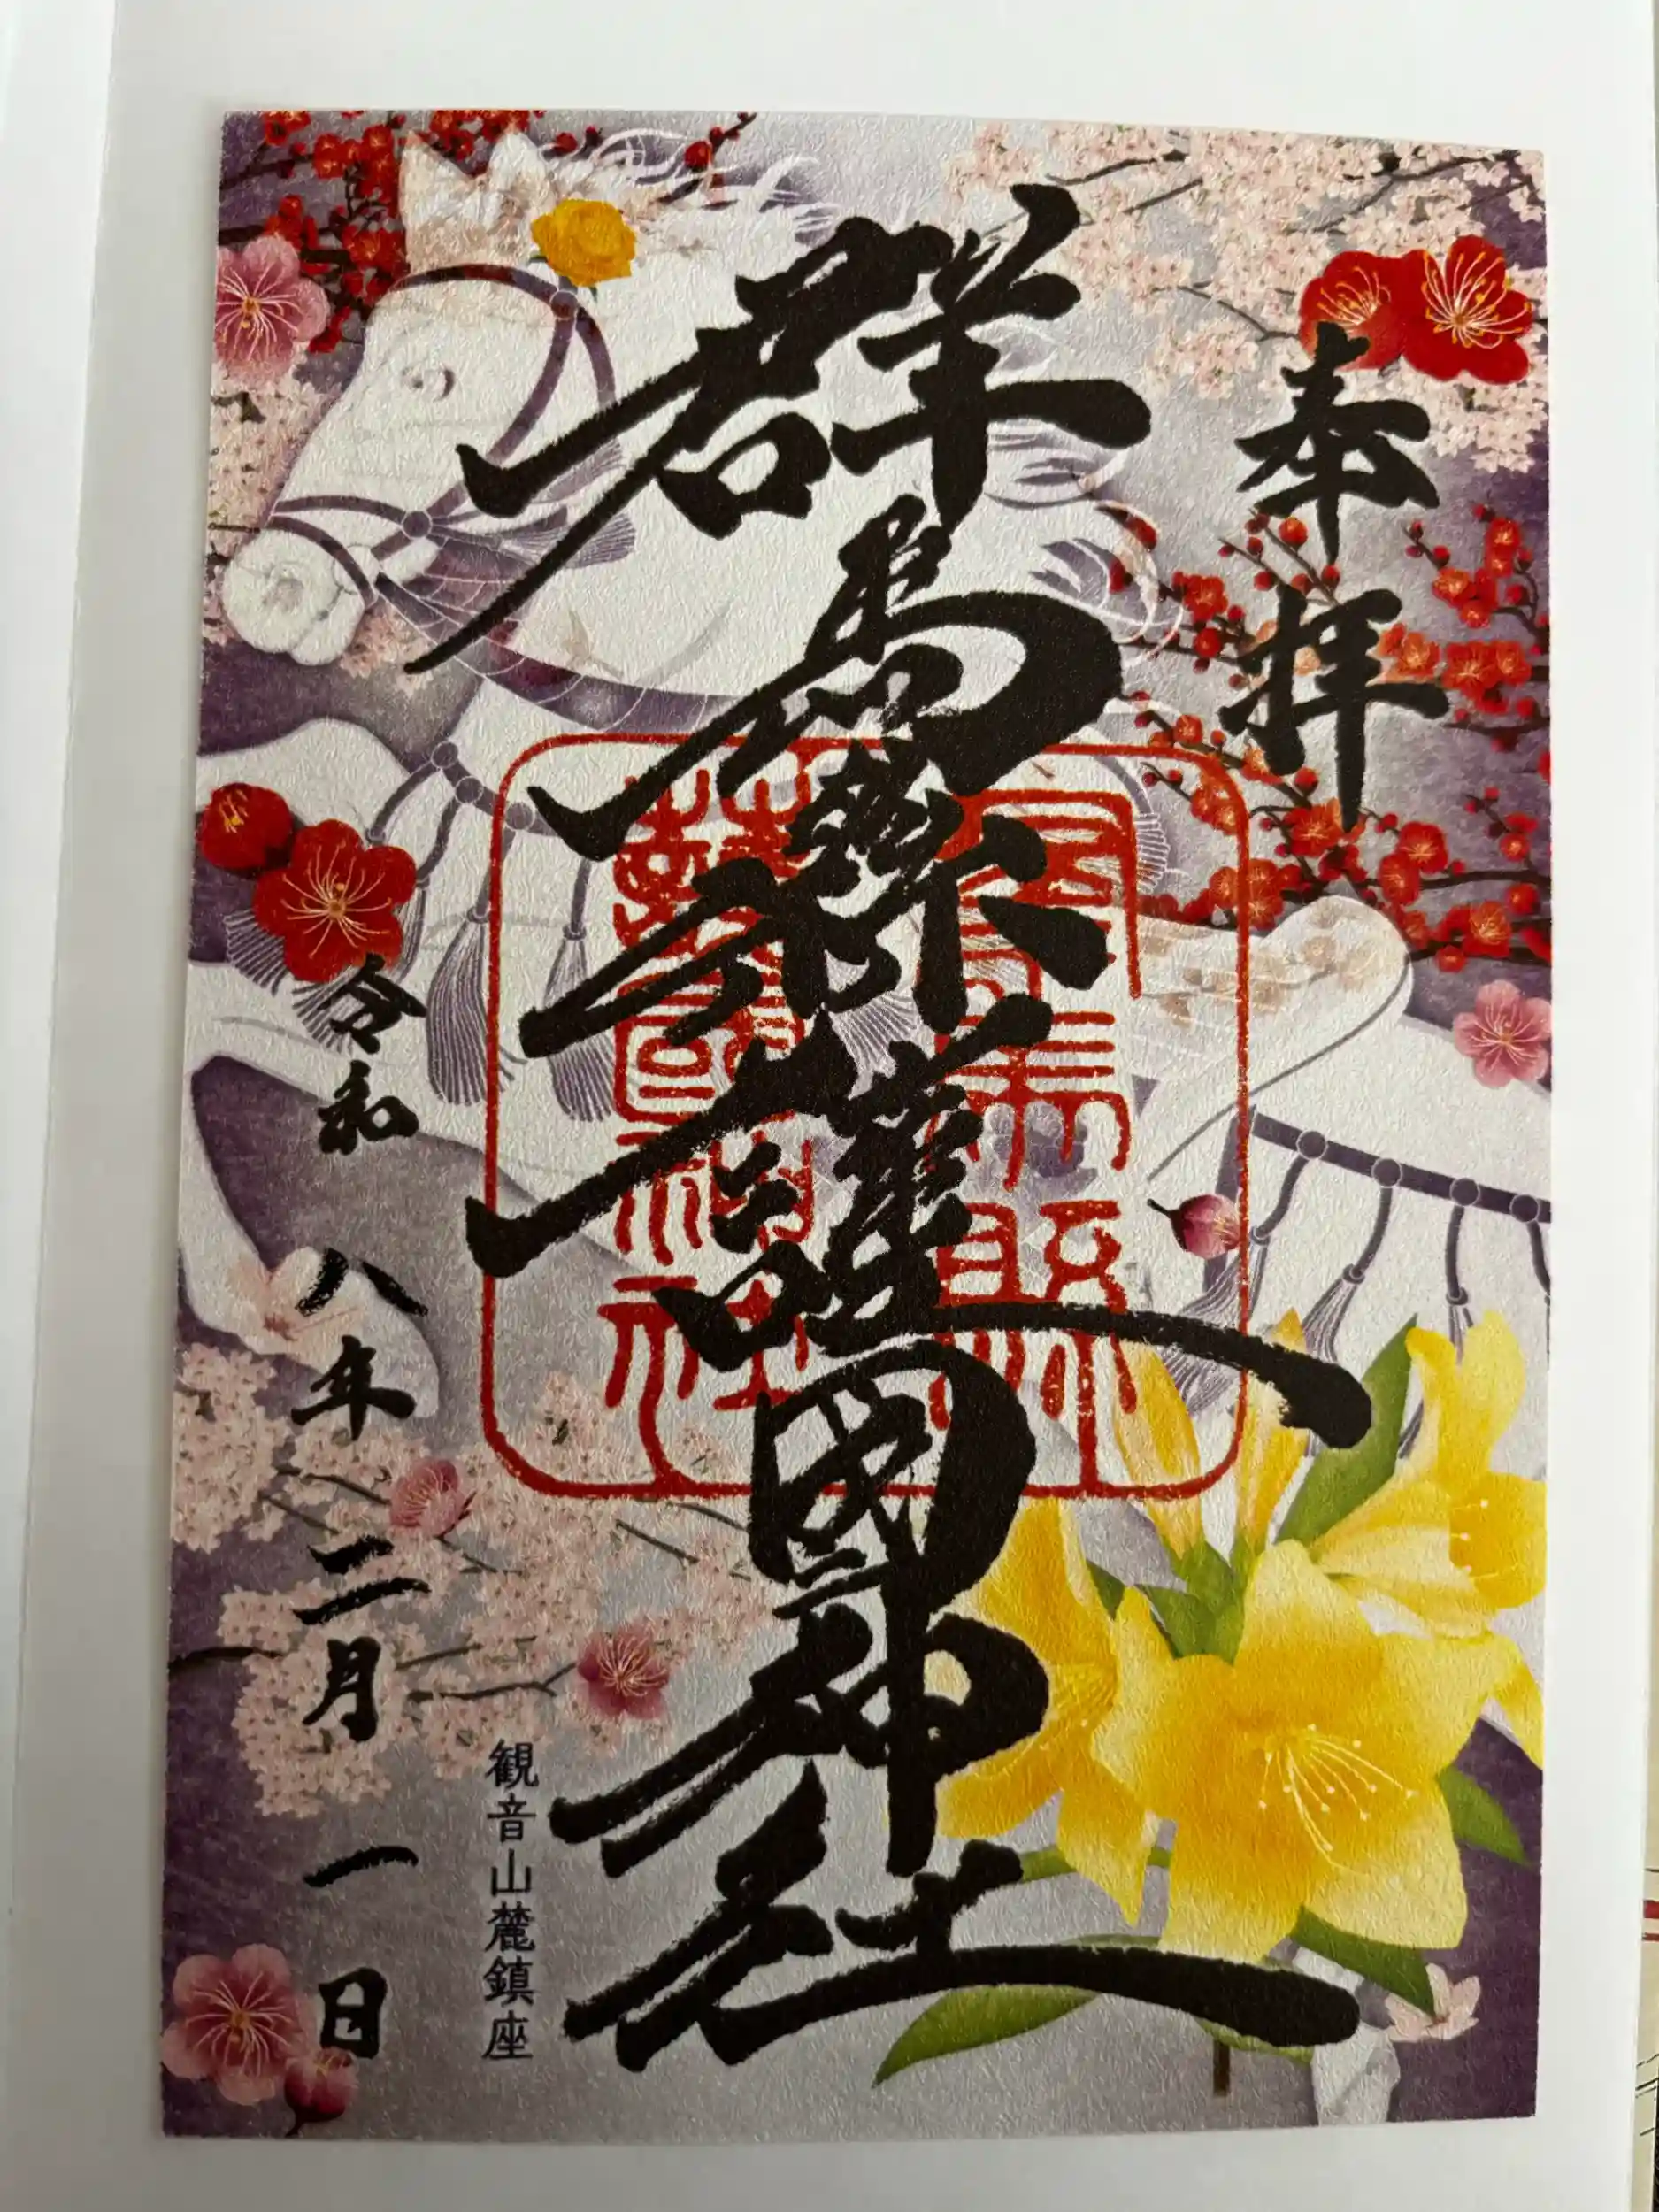 奉拝
群馬縣護國神社
群馬縣
護國神社
観音山麓鎮座
令和八年二月一日